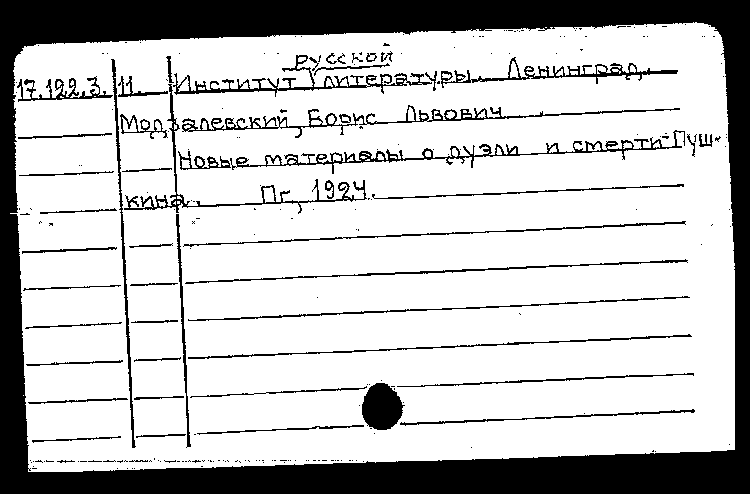 русской
17.122.3. 11. Институт √ литературы. Ленинград.
Модзалевский, Борис Львович.
Новые материалы о дуэли и смерти Пуш-
кина. Пг, 1924.